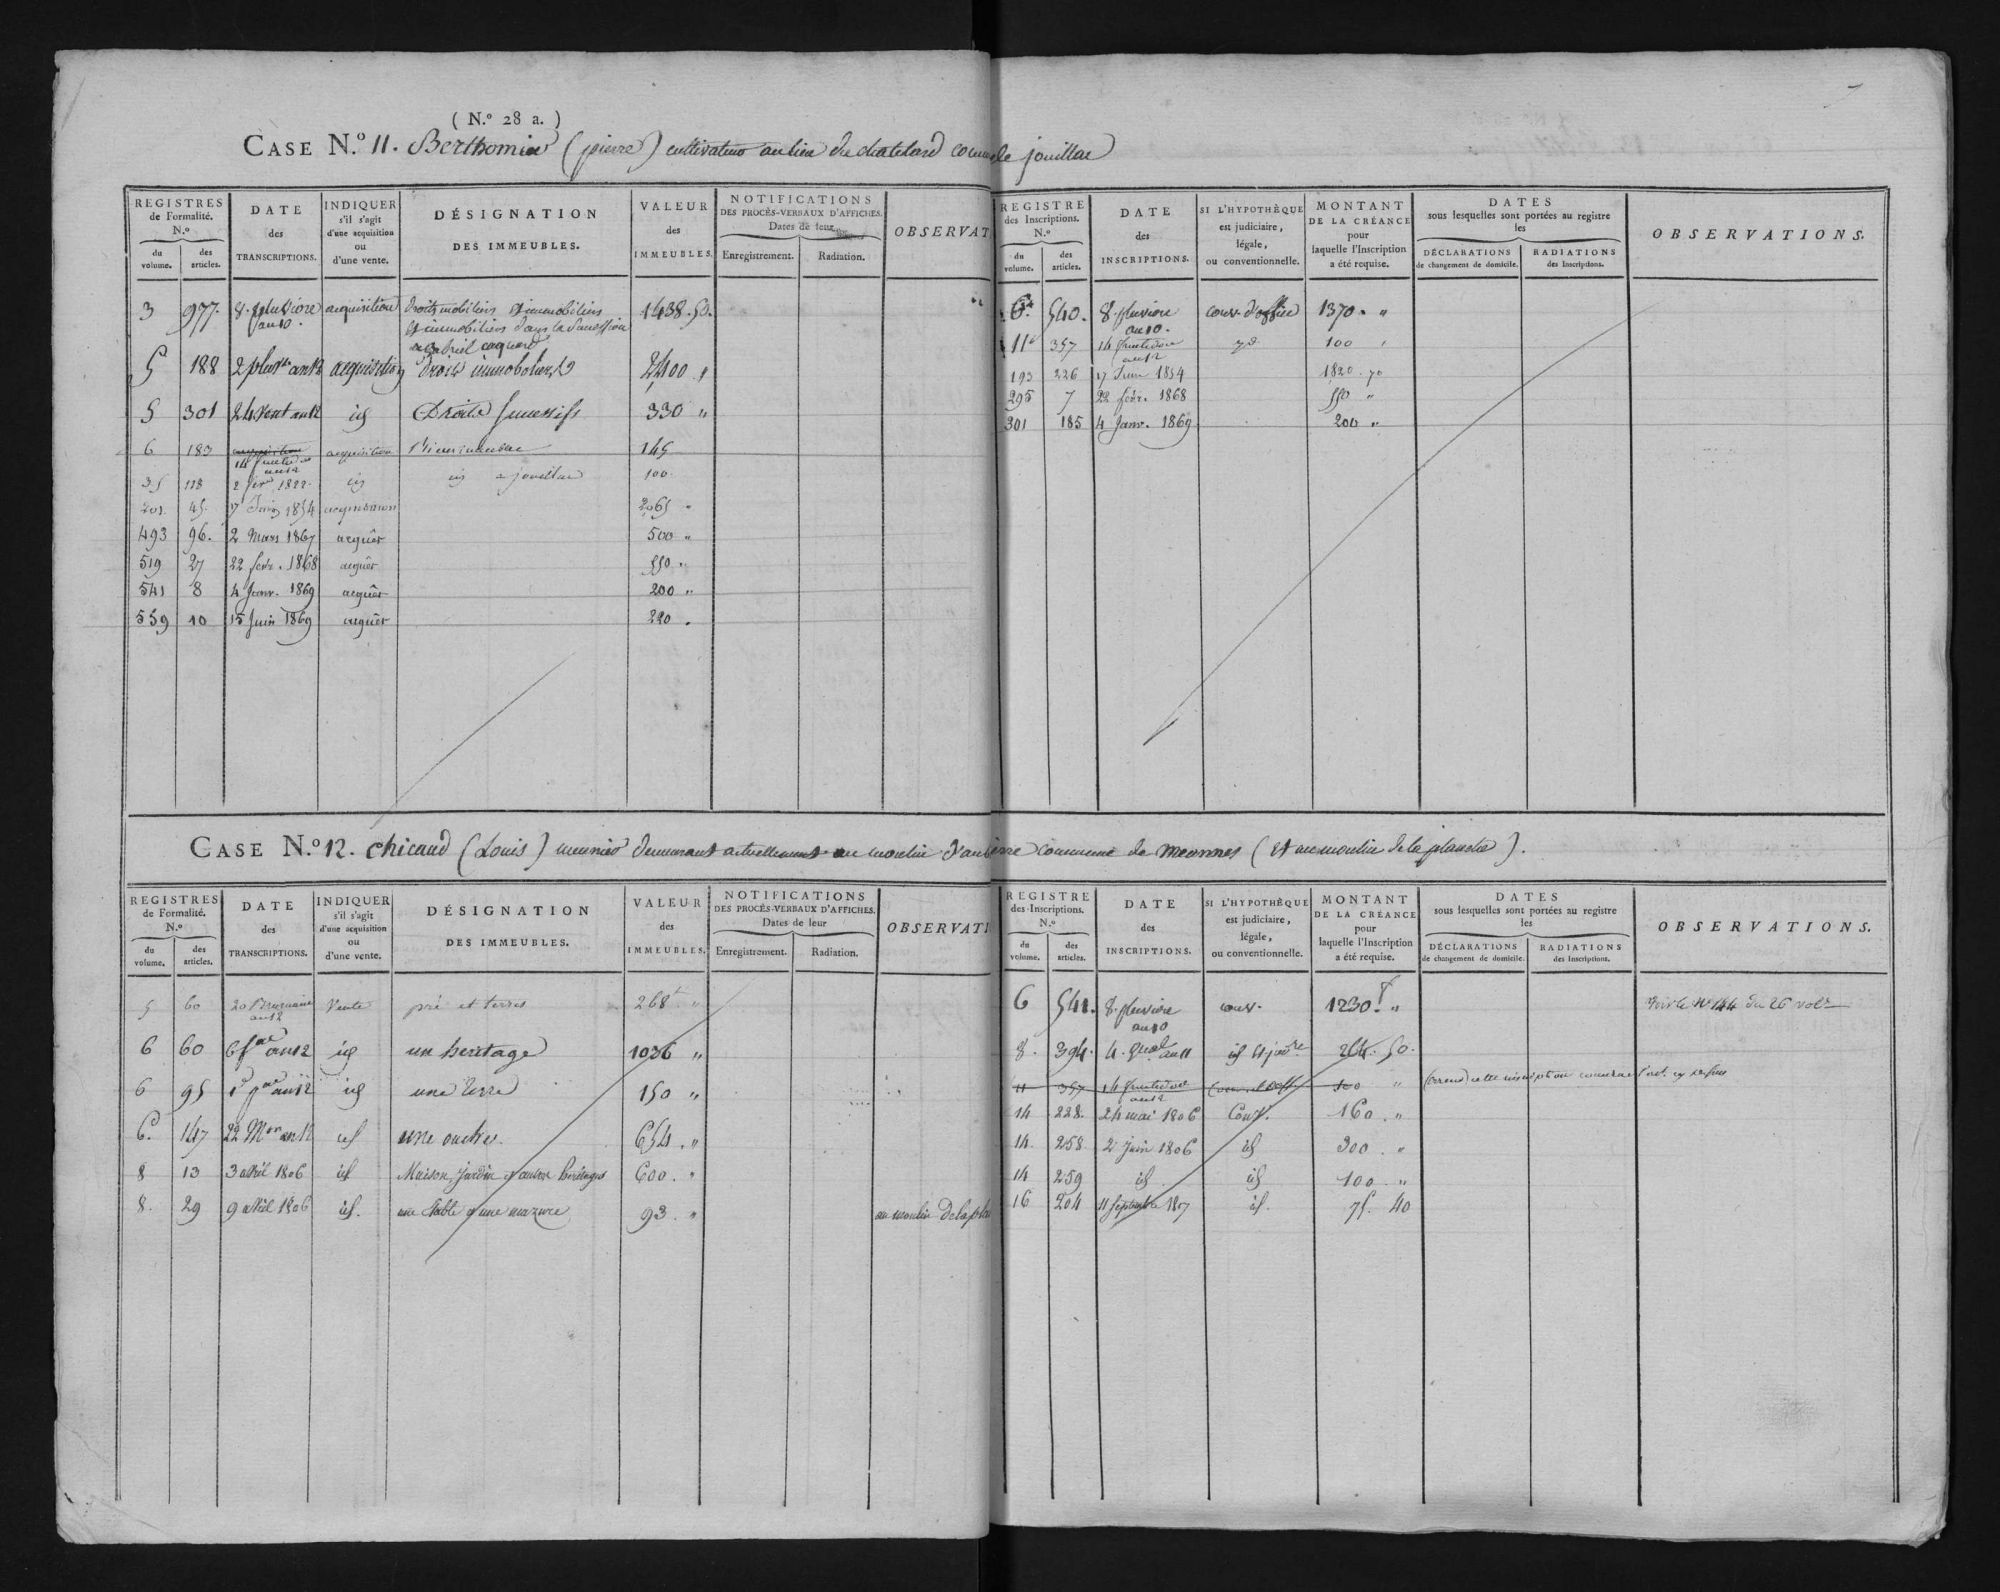 ( N.º 28 a. )
CASE N.º 11. Berthomier (pierre) cultivateur au lieu du chatelard comm. de jouillac
REGISTRES de Formalité. N.º
du volume.
des articles.
DATE des TRANSCRIPTIONS.
INDIQUER s'il s'agit d'une acquisition ou d'une vente.
DÉSIGNATION DES IMMEUBLES.
VALEUR des IMMEUBLES.
NOTIFICATIONS DES PROCÈS-VERBAUX D'AFFICHES. Dates de leur
Enregistrement.
Radiation.
OBSERVAT
3 977. 8. pluviôse an 10. acquisition droits mobiliers et immobiliers 1438. 50.
et immobiliers dans la Succession
5 188 2 pluv. an 12 acquisition Droits immobiliers 2400 "
5 301 24 vent an 12 id Droits Successifs 330 "
6 183 acquisition 14 fructidor an 12 acquisition 145
35 118 2 1822 id id a jouillac 100
201. 45. 17 Juin 1854 acquisition 2065 "
493 96. 2 Mars 1867 acquêt 500 "
519 27 22 févr. 1868 acquêt 550 "
541 8 4 Janv. 1869 acquêt 200 "
559 10 15 Juin 1869 acquêt 220 "
REGISTRE des Inscriptions. N.º
du volume.
des articles.
DATE des INSCRIPTIONS.
SI L'HYPOTHÈQUE est judiciaire, légale, ou conventionnelle.
MONTANT DE LA CRÉANCE pour laquelle l'Inscription a été requise.
DATES sous lesquelles sont portées au registre les
DÉCLARATIONS de changement de domicile.
RADIATIONS des Inscriptions.
OBSERVATIONS.
6. 540. 8. pluviôse an 10. conv. d'office 1370. "
11 357 14 fructidor an 12 100
193 226 17 Juin 1854 1820. 70
295 7 22 févr. 1868 550 "
301 185 4 Janv. 1869 200 "
CASE N.º 12. chicaud (Louis) meunier demeurant actuellement au moulin commune de meannes (et au moulin de la planche).
REGISTRES de Formalité. N.º
du volume.
des articles.
DATE des TRANSCRIPTIONS.
INDIQUER s'il s'agit d'une acquisition ou d'une vente.
DÉSIGNATION DES IMMEUBLES.
VALEUR des IMMEUBLES.
NOTIFICATIONS DES PROCÈS-VERBAUX D'AFFICHES. Dates de leur
Enregistrement.
Radiation.
OBSERVATI
5 60 20 Brumaire an 12 Vente pré et terres 268 "
6 60 6 an 12 id un heritage 1036 "
6 95 1 an 12 id une terre 150 "
6. 147 22 an 12 id 654. "
8 13 3 avril 1806 id Maison, jardin et autres héritages 600. "
8. 29 9 avril 1806 id. une Etable et une mazure 93. " au moulin de la plan
REGISTRE des Inscriptions. N.º
du volume.
des articles.
DATE des INSCRIPTIONS.
SI L'HYPOTHÈQUE est judiciaire, légale, ou conventionnelle.
MONTANT DE LA CRÉANCE pour laquelle l'Inscription a été requise.
DATES sous lesquelles sont portées au registre les
DÉCLARATIONS de changement de domicile.
RADIATIONS des Inscriptions.
OBSERVATIONS.
6 541. 8. pluviôse an 10 conv. 1230 f " Voir le Nº 144 du 26 vol.
8. 394. 4. an 11 id et jud.re 264. 50.
11 357 14 fructidor an 12 100 " cette inscription
14 228. 24 mai 1806 Conv. 160. "
14. 258 2 juin 1806 id 300. "
14 259 id. id 100 "
16 204 11 Septembre 1807 id. 75. 40